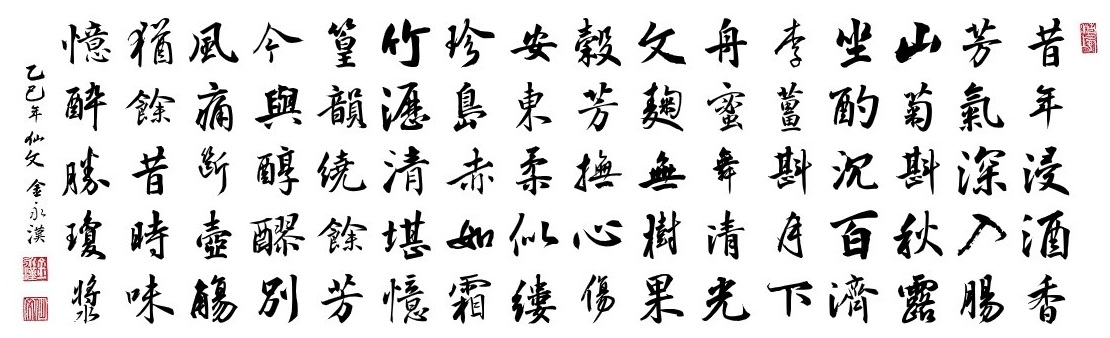 昔年浸酒香
芳氣深入腸
山菊斟秋露
坐酌沉百濟
李薑斟月下
舟蜜舞清光
文麴無樹果
穀芳撫心傷
安東柔似縷
珍島赤如霜
竹瀝清堪憶
篁韻繞餘芳
今與醇醪別
風痛斷壺觴
猶餘昔時味
憶醉勝瓊漿
乙巳年仙文金永漢